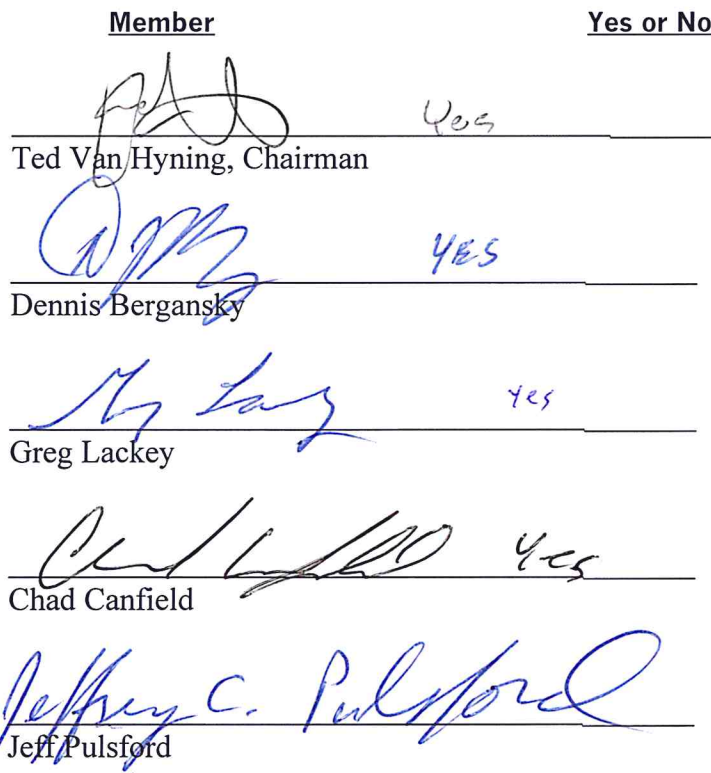 Member Yes or No
Yes
Ted Van Hyning, Chairman
YES
Dennis Bergansky
Greg Lackey yes
Greg Lackey
Chad Canfield Yes
Chad Canfield
Jeffrey C. Pulsford
Jeff Pulsford